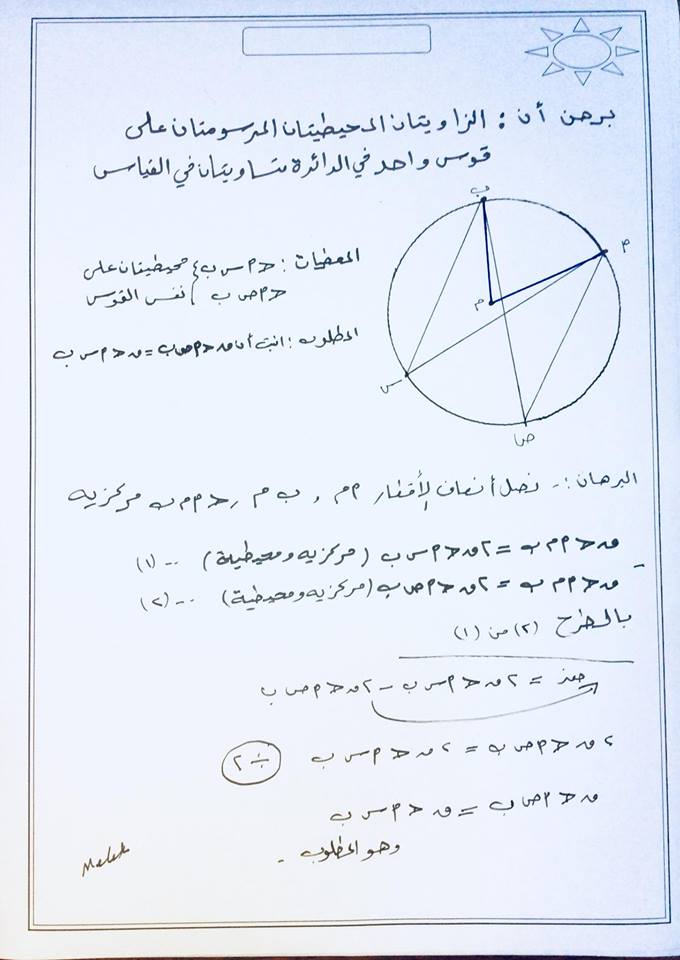 برهن أن : الزاويتان المحيطيتان المرسومتان على
قوس واحد في الدائرة متساويتان في القياس
ب
م
س
ص
المعطيات : > م س ب } محيطيتان على
> م ص ب } نفس القوس
المطلوب : اثبت أن ق > م ص ب = ق > م س ب
البرهان :- نصل أنصاف الأقطار م م , ب م , > م م ب مركزيه
ق > م م ب = ٢ ق > م س ب ( مركزيه ومحيطية ) -- (١)
ق > م م ب = ٢ ق > م ص ب ( مركزيه ومحيطية ) -- (٢)
بالطرح (٢) من (١)
صفر = ٢ ق > م س ب - ٢ ق > م ص ب
٢ ق > م ص ب = ٢ ق > م س ب ÷ ٢
ق > م ص ب = ق > م س ب
وهو المطلوب -